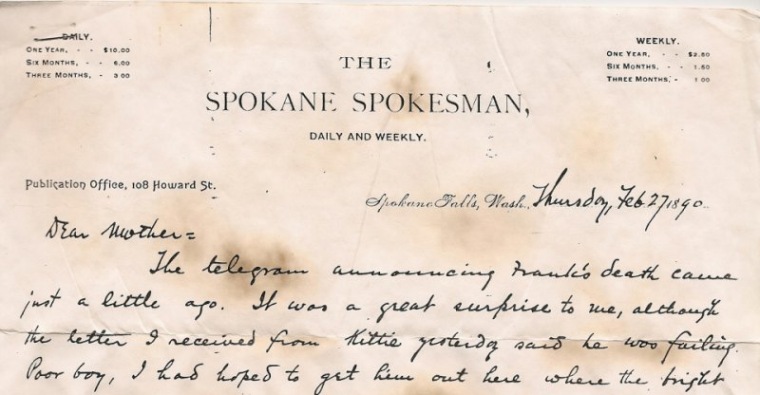 DAILY.
ONE YEAR, - - $10.00
SIX MONTHS, - 6.00
THREE MONTHS, - 3 00
WEEKLY.
ONE YEAR, - - $2.50
SIX MONTHS, - 1.50
THREE MONTHS, - 1 00
THE
SPOKANE SPOKESMAN,
DAILY AND WEEKLY.
Publication Office, 108 Howard St.
Spokane Falls, Wash., Thursday, Feb 27 1890
Dear Mother=
The telegram announcing Frank's death came
just a little ago. It was a great surprise to me, although
the letter I received from Kittie yesterday said he was failing.
Poor boy, I had hoped to get him out here where the bright